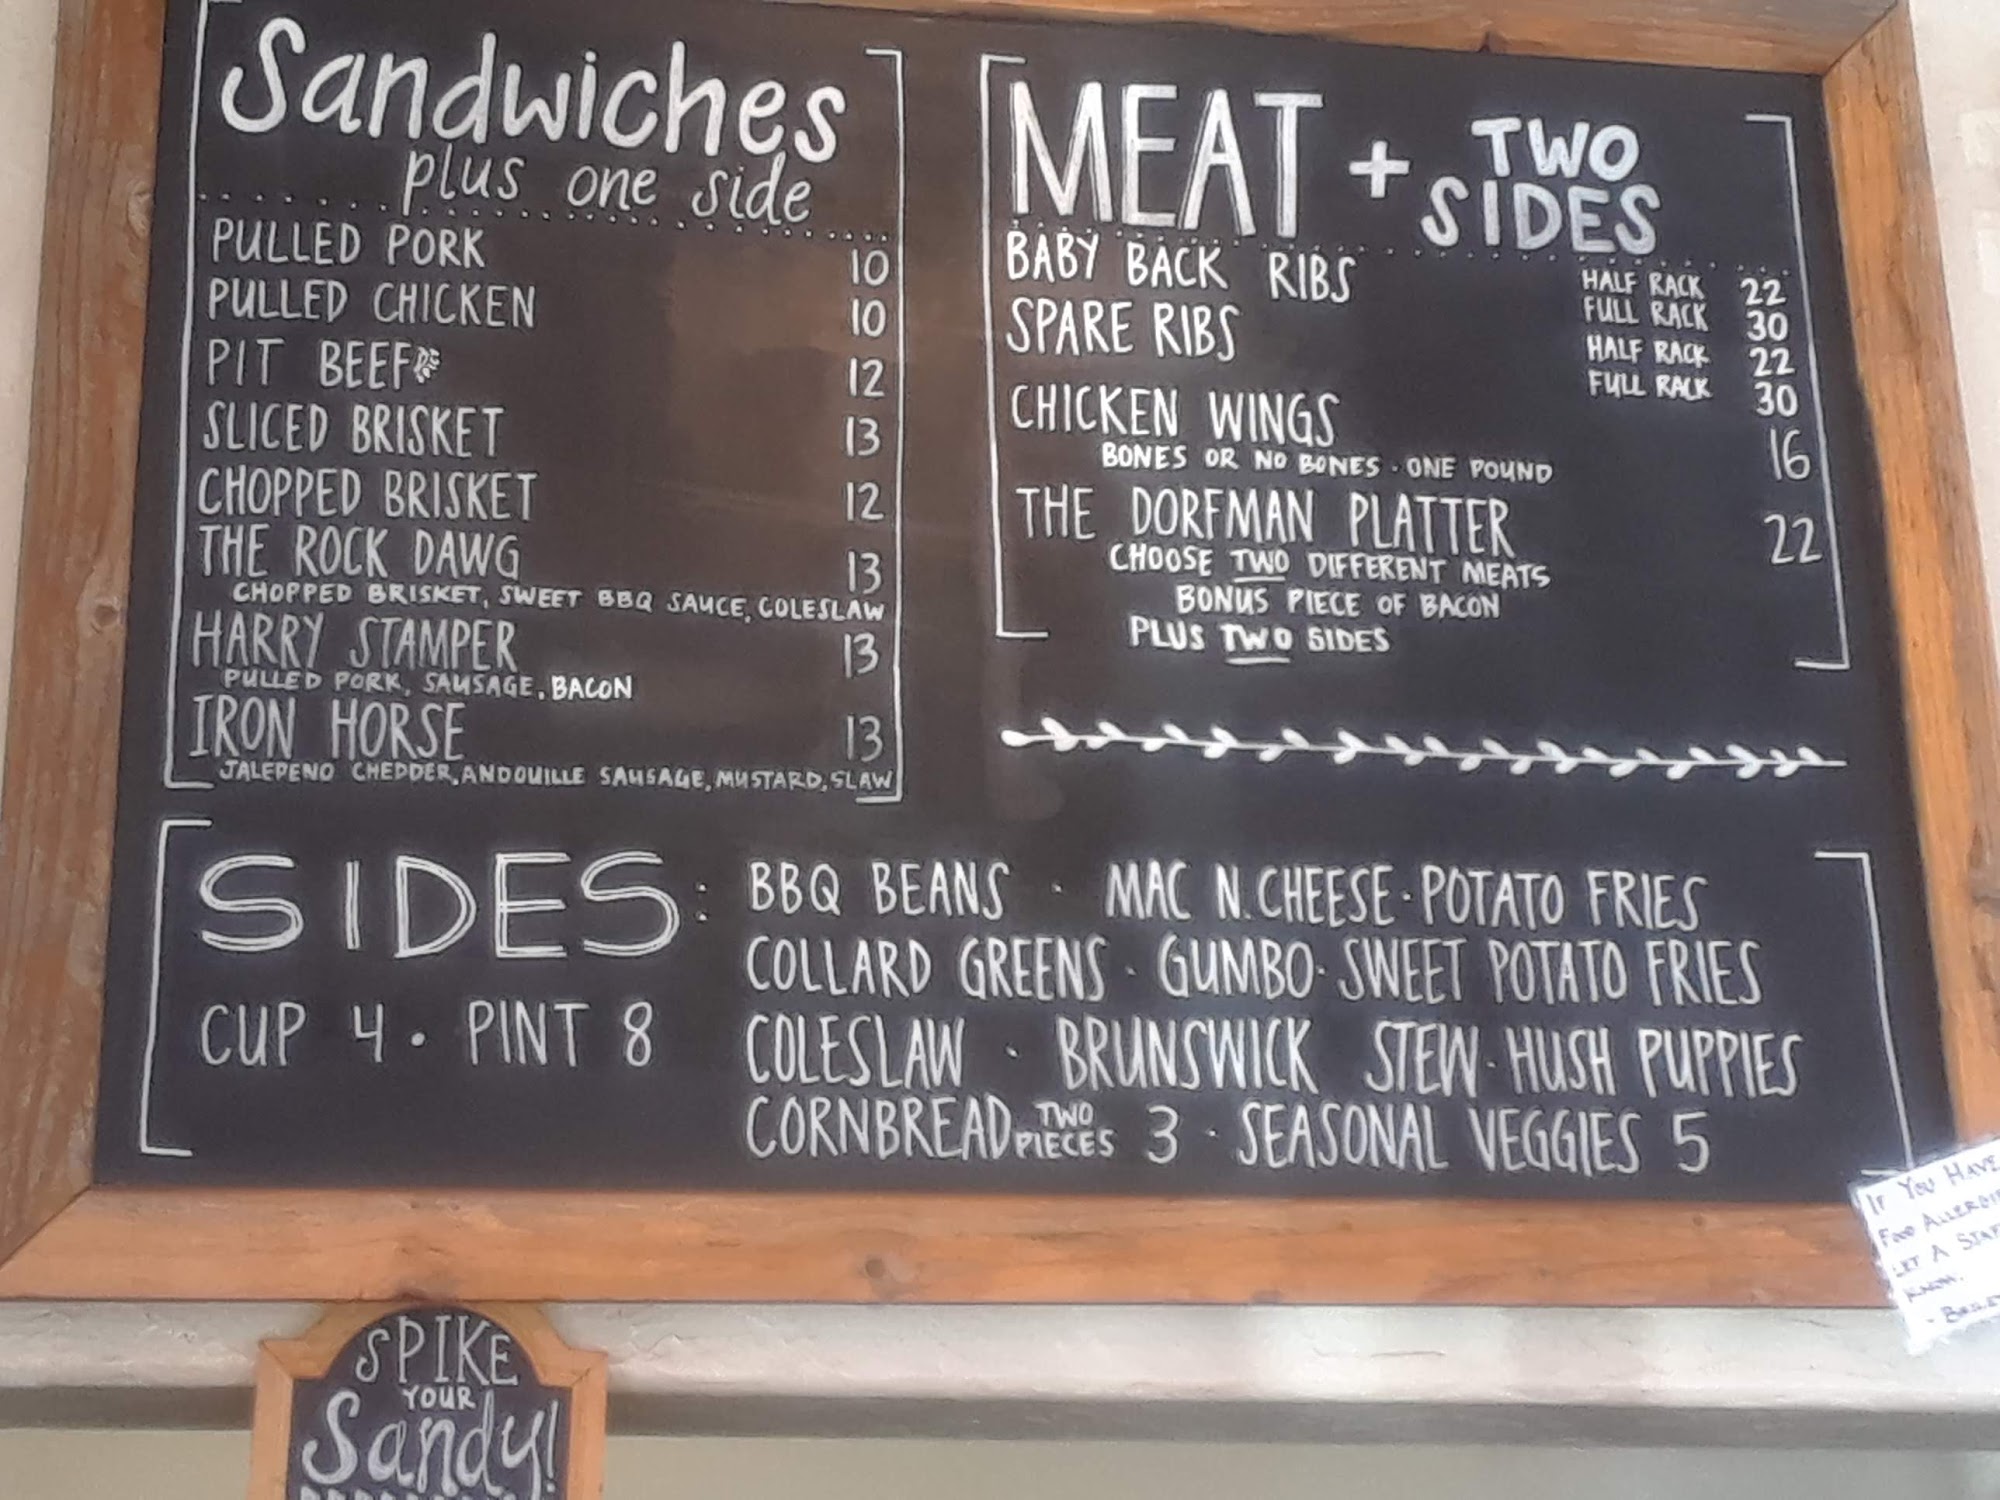 Sandwiches
plus one side
PULLED PORK 10
PULLED CHICKEN 10
PIT BEEF 12
SLICED BRISKET 13
CHOPPED BRISKET 12
THE ROCK DAWG 13
CHOPPED BRISKET, SWEET BBQ SAUCE, COLESLAW
HARRY STAMPER 13
PULLED PORK, SAUSAGE, BACON
IRON HORSE 13
JALEPENO CHEDDER, ANDOUILLE SAUSAGE, MUSTARD, SLAW
MEAT + TWO SIDES
BABY BACK RIBS HALF RACK 22
FULL RACK 30
SPARE RIBS HALF RACK 22
FULL RACK 30
CHICKEN WINGS 16
BONES OR NO BONES · ONE POUND
THE DORFMAN PLATTER 22
CHOOSE TWO DIFFERENT MEATS
BONUS PIECE OF BACON
PLUS TWO SIDES
SIDES:
CUP 4 · PINT 8
BBQ BEANS · MAC N. CHEESE · POTATO FRIES
COLLARD GREENS · GUMBO · SWEET POTATO FRIES
COLESLAW · BRUNSWICK STEW · HUSH PUPPIES
CORNBREAD TWO PIECES 3 · SEASONAL VEGGIES 5
IF YOU HAVE
FOOD
LET A
KNOW.
SPIKE
YOUR
Sandy!